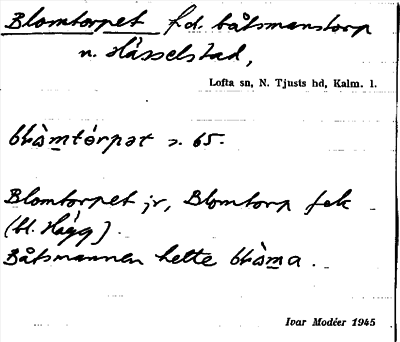 Blomtorpet f.d. båtsmanstorp
n. Hässelstad,
Lofta sn, N. Tjusts hd, Kalm. l.
blὼmtórpət s. 65.
Blomtorpet jr, Blomtorp fek
(bl. Hägg).
Båtsmannen hette
Ivar Modéer 1945